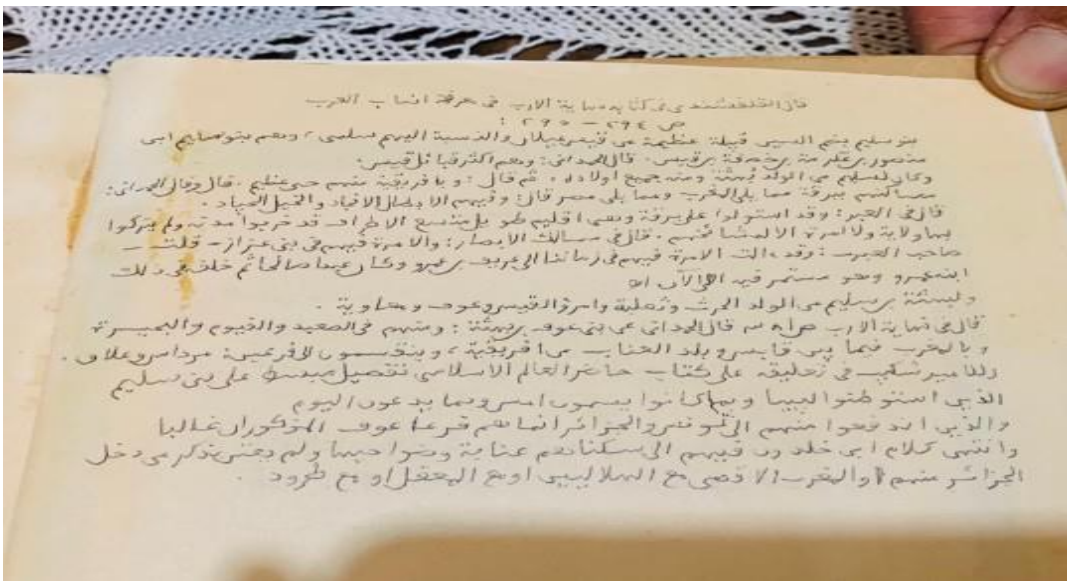 قال القلقشندي في كتابه نهاية الارب في معرفة انساب العرب
ص ٢٩٤ - ٢٩٥ :
بنو سليم بضم السين قبيلة عظيمة من قيس عيلان والنسبة اليهم سلمي ، وهم بنو سليم ابن
منصور بن عكرمة بن خصفة بن قيس . قال الحمداني : وهم اكثر قبائل قيس .
وكان لسليم من الولد بُهثة ومنه جميع اولاده . ثم قال : وبافريقية منهم حي عظيم . قال وقال الحمداني :
مساكنهم ببرقة مما يلي المغرب ومما يلي مصر قال : وفيهم الابطال الانجاد والخيل الجياد .
قال في العبر : وقد استولوا على برقة وهي اقليم طويل متسع الاطراف قد خربوا مدنه ولم يتركوا
بها ولاية ولا امرة الا لمشائخهم . قال في مسالك الابصار : والامرة فيهم في بني عزاز - قلت -
صاحب العبر : وقد آلت الامرة فيهم في زماننا الى عريف بن عمرو وكان عبدا صالحا ثم خلفه في ذلك
ابنه عمرو وهو مستمر فيه الى الآن اه
ولبهثة بن سليم من الولد الحرث وثعلبة وامرؤ القيس وعوف ومعاوية .
قال في نهاية الارب قال الحمداني عن بني عوف بن بهثة : ومنهم في الصعيد والفيوم والبحيرة
وبالمغرب فيما بين قابس وبلد العناب من افريقية ، وينقسمون الى فرعين : مرداس وعلاق .
وللامير شكيب في تعليقه على كتاب حاضر العالم الاسلامي تفصيل مبسط على بني سليم
الذين استوطنوا ليبيا وبما كانوا يسمون امس وبما يدعون اليوم
والذين اندفعوا منهم الى تونس والجزائر انما هم فرعا عوف المذكوران غالبا
وانتهى كلام ابن خلدون فيهم الى سكناهم عنابة وضواحيها ولم يعتن بذكر من دخل
الجزائر منهم او المغرب الاقصى مع الهلاليين او مع المعقل او مع طرود .